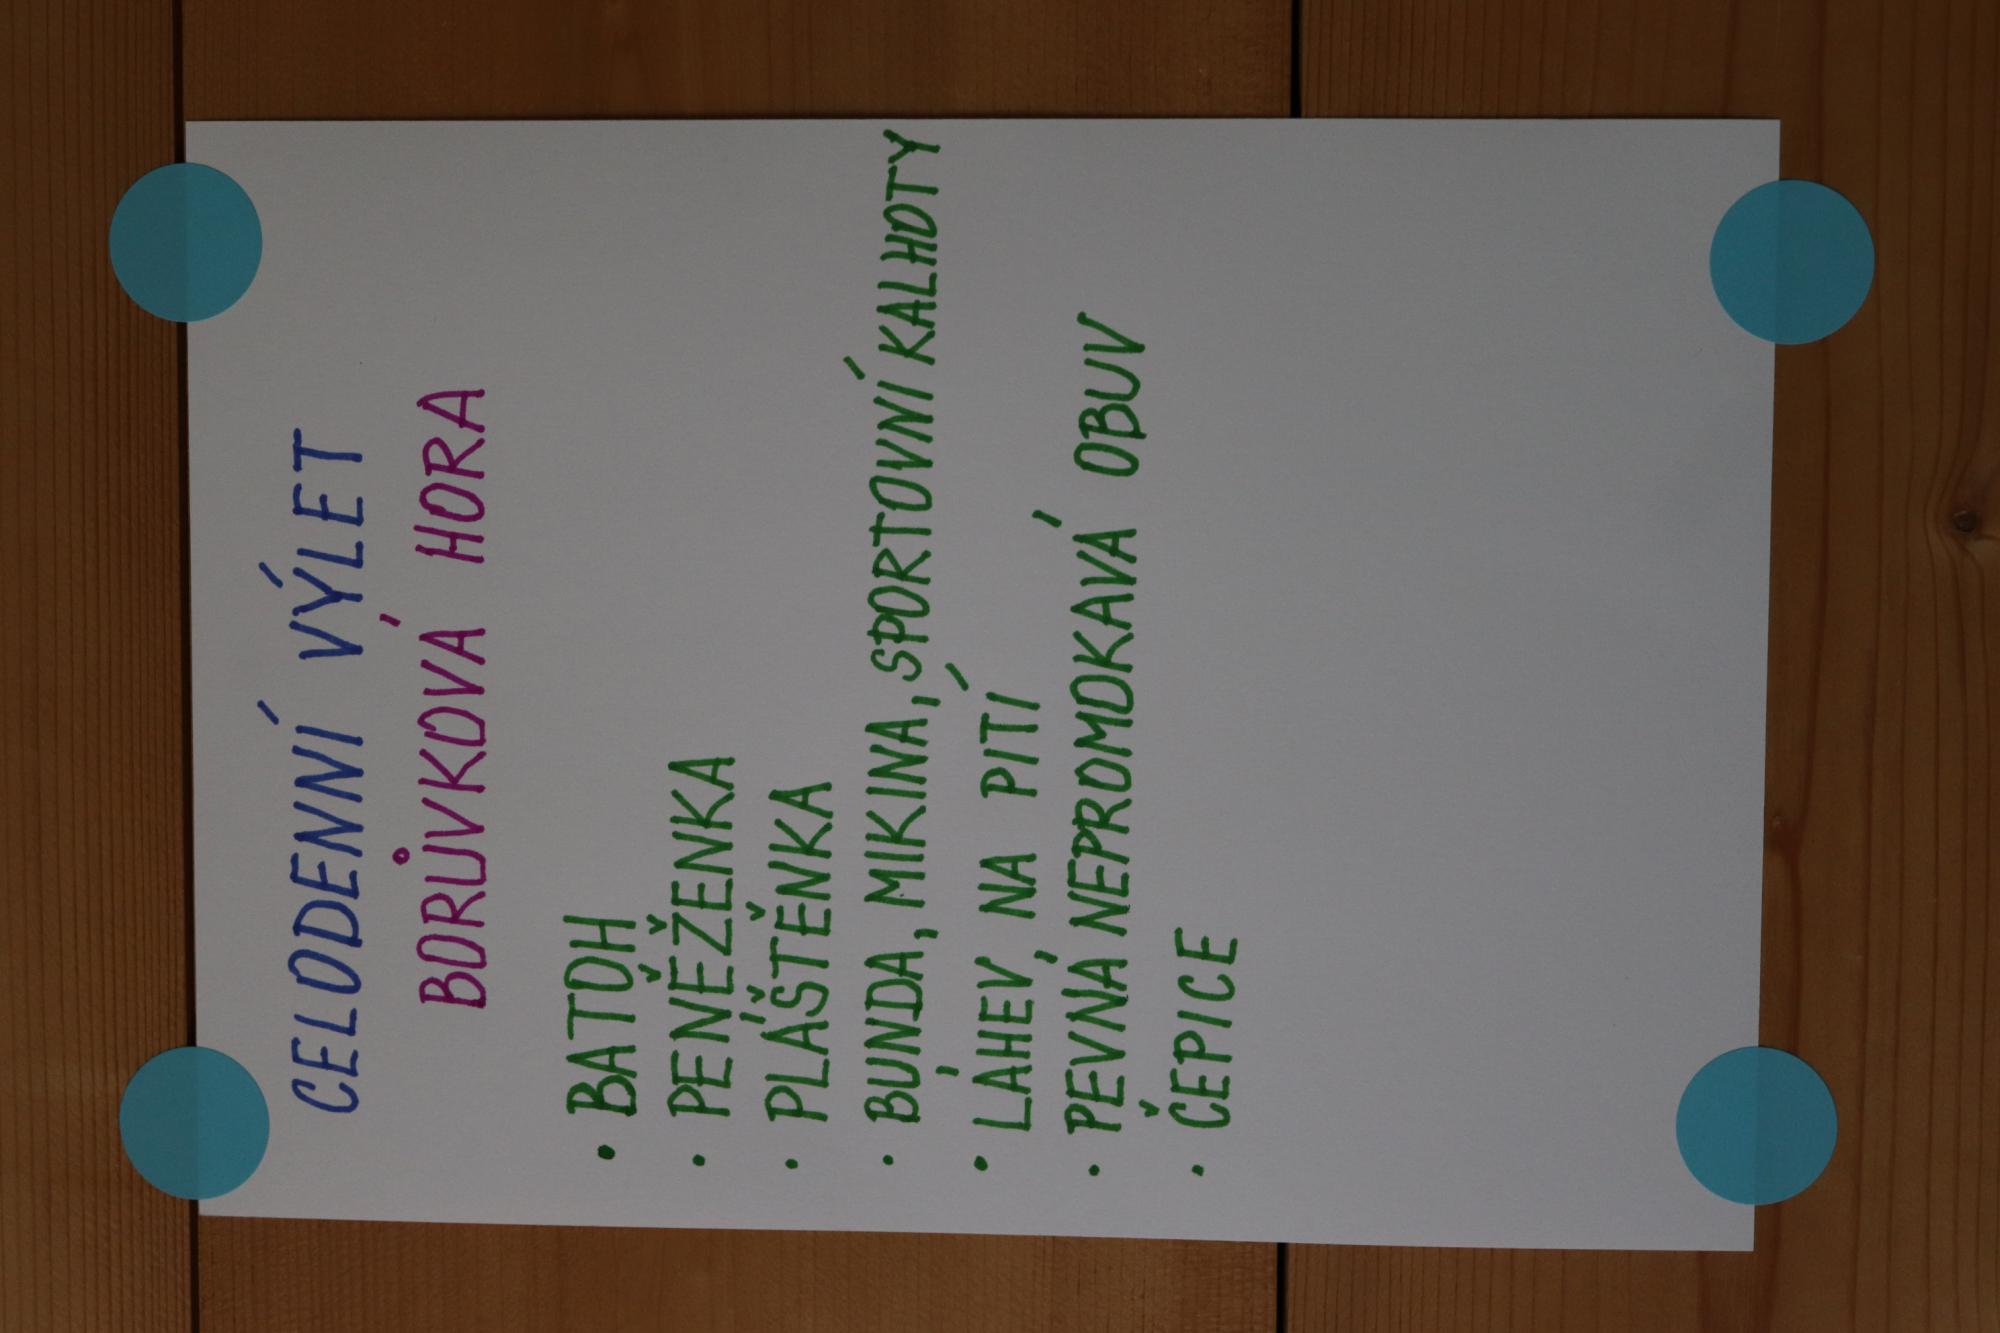 CELODENNÍ VÝLET
BORŮVKOVÁ HORA
• BATOH
• PENĚŽENKA
• PLÁŠTĚNKA
• BUNDA, MIKINA, SPORTOVNÍ KALHOTY
• LÁHEV NA PITÍ
• PEVNÁ NEPROMOKAVÁ OBUV
• ČEPICE